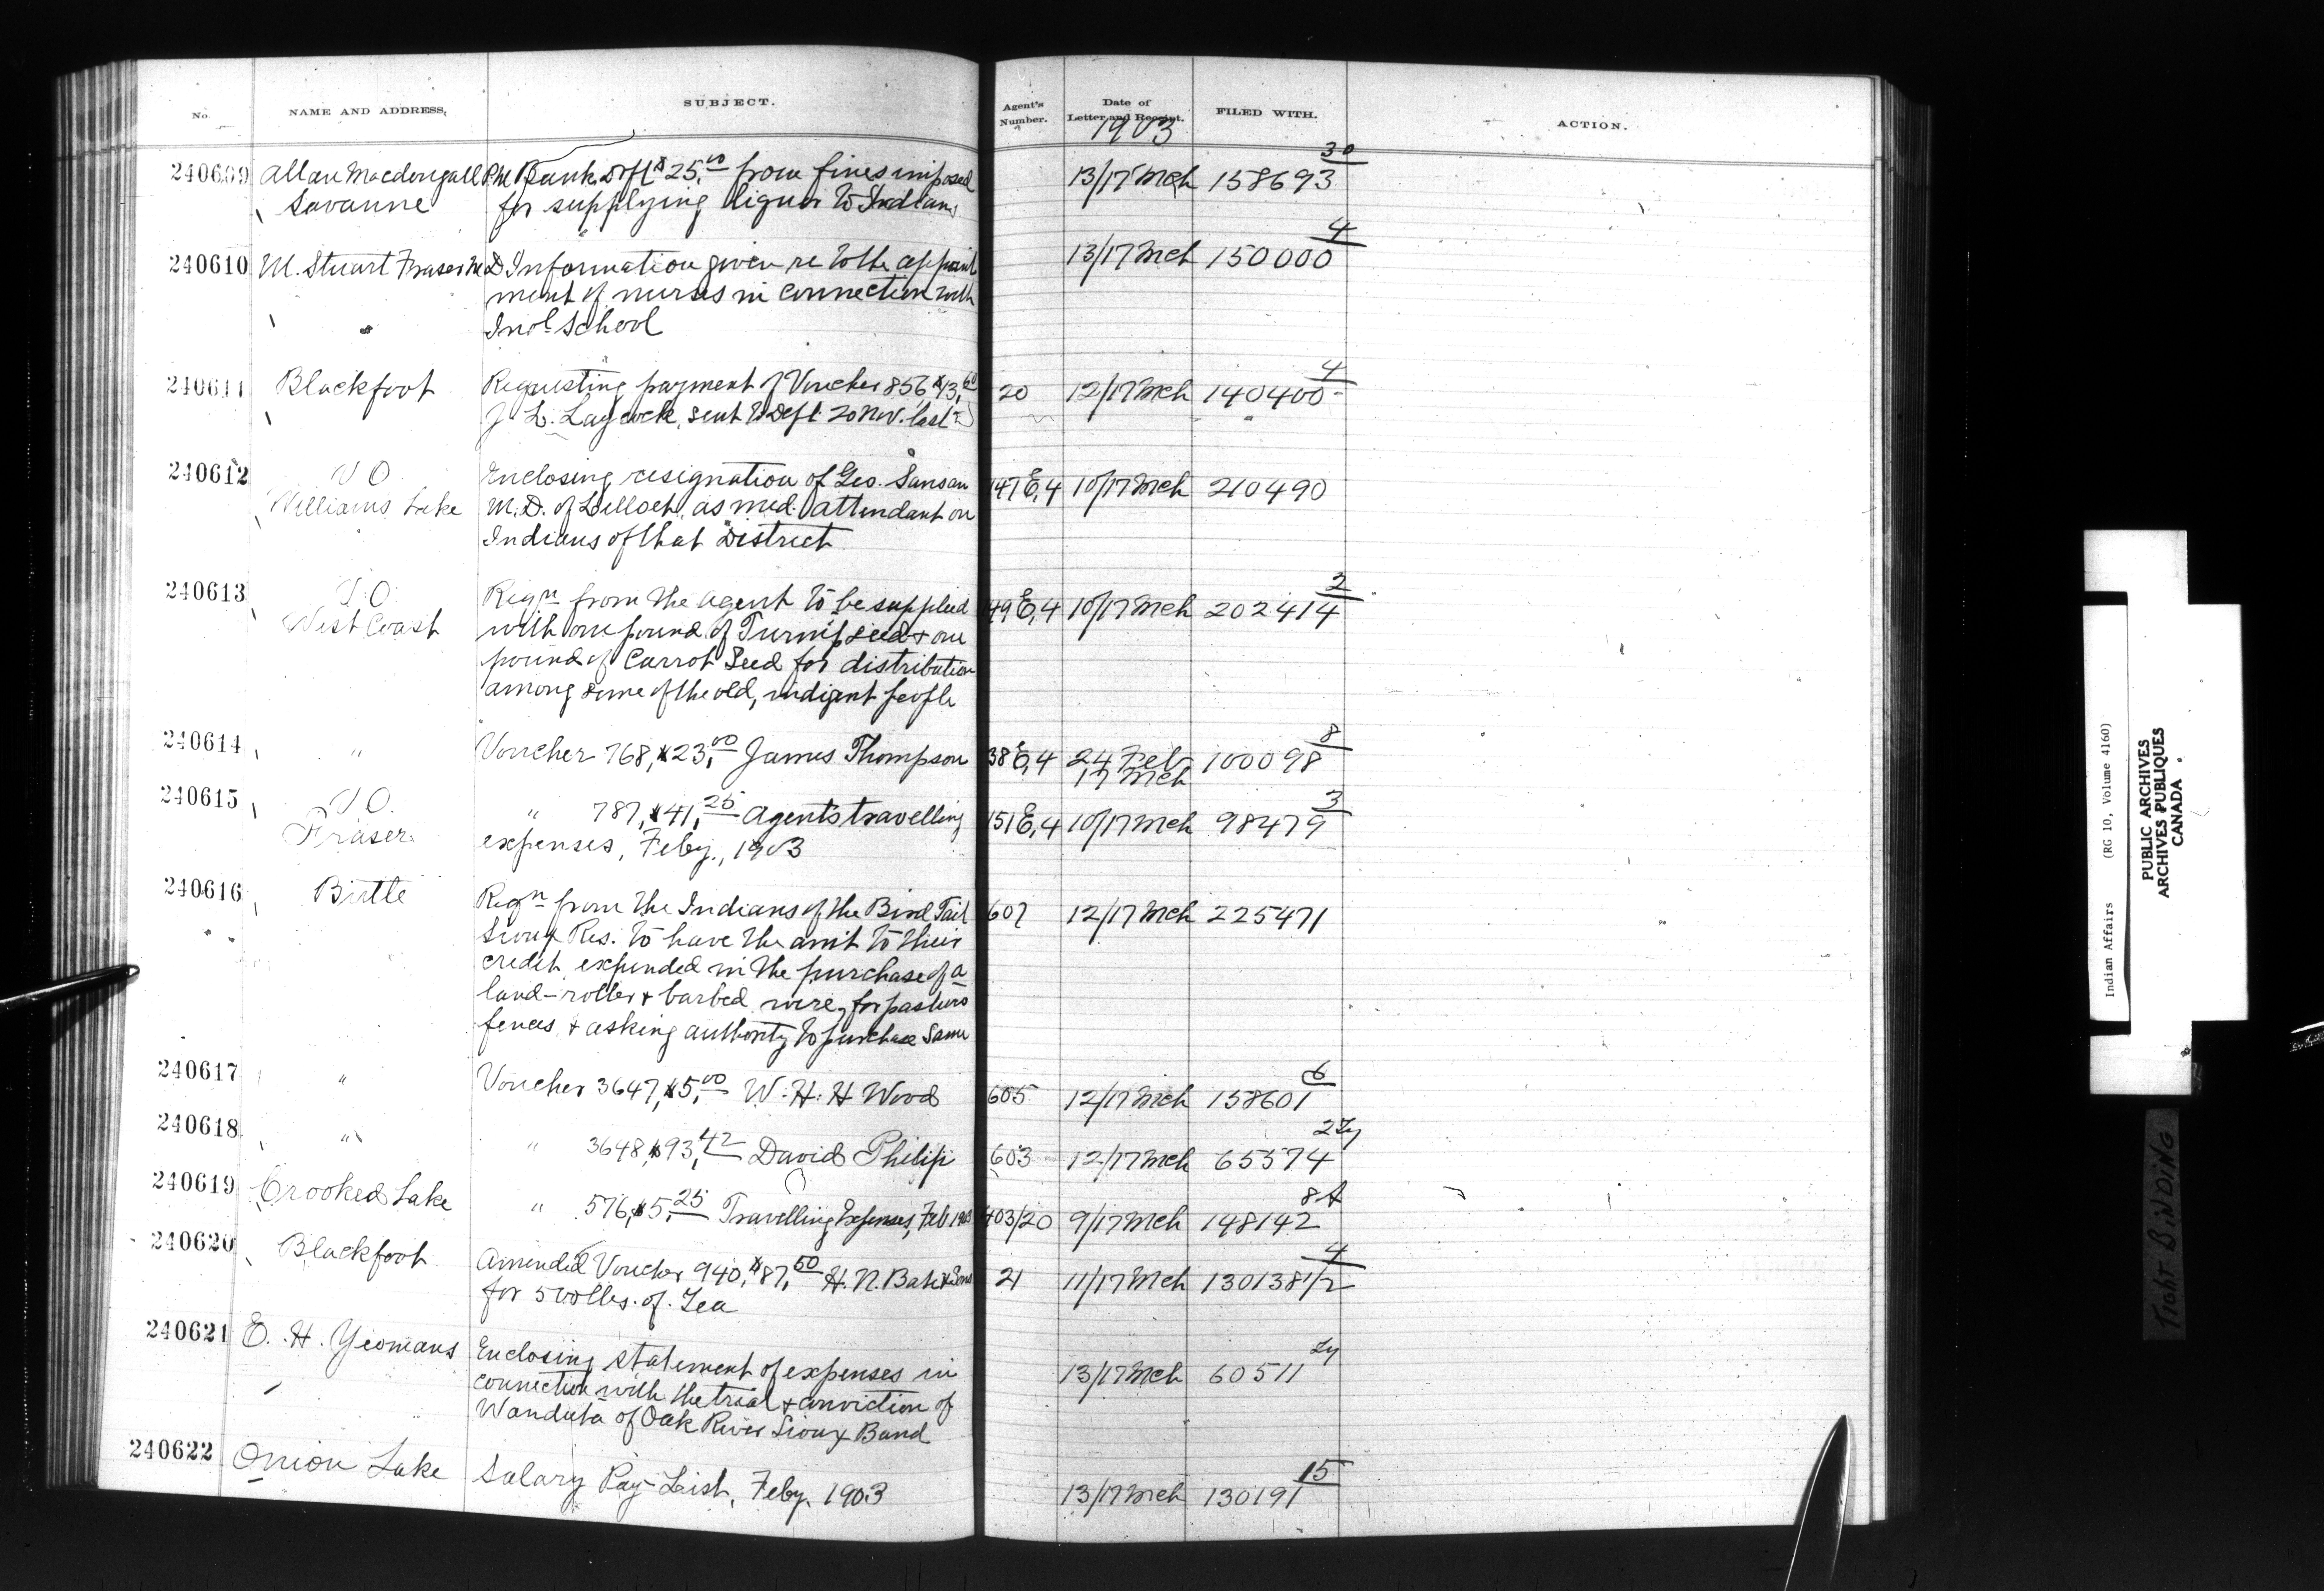 No.
NAME AND ADDRESS,
SUBJECT.
Agent's Number.
Date of Letter and Receipt.
FILED WITH.
ACTION.
1903
240609 Allan Macdougall Bank Dft $25,00 from fines imposed 13/17 Mch 158693 30
Savanne for supplying liquor to Indians
240610 M. Stuart Fraser M.D Information given re to the appoint 13/17 Mch 150000 4
ment of nurses in connection with
Indl School
240611 Blackfoot Requesting payment of Voucher 856 $13,60 20 12/17 Mch 140400 4
J. L. Laycock, sent to Dept 20 Nov. last
240612 V O Enclosing resignation of Geo. Sanson 147 E,4 10/17 Mch 210490
Williams Lake M.D. of Lilloet, as med. attendant on
Indians of that District
240613 V.O. Reqn from the agent to be supplied 149 E,4 10/17 Mch 202414 2
West Coast with one pound of Turnip seed & one
pound of Carrot Seed for distribution
among some of the old, indigent people
240614 " Voucher 768, $23,00 James Thompson 38 E,4 24 Feb 100098 8
17 Mch
240615 V.O. " 787, $41,25 Agent's travelling 151 E,4 10/17 Mch 98479 3
Fraser expenses, Feby., 1903
240616 Birtle Reqn from the Indians of the Bird Tail 607 12/17 Mch 225471
Sioux Res. to have the amt to their
credit expended in the purchase of a
land-roller & barbed wire, for pasture
fences & asking authority to purchase same
240617 " Voucher 3647, $5,00 W. H. H Wood 605 12/17 Mch 158601 6
240618 " " 3648, $93,42 David Philip 603 12/17 Mch 65574 2
240619 Crooked Lake " 576, $5,25 Travelling Expenses, Feb 1903 403/20 9/17 Mch 148142 8A
240620 Blackfoot Amended Voucher 940, $87,50 H. N. Bate & Sons 21 11/17 Mch 130138 1/2 4
for 500 lbs. of Tea
240621 E. H. Yeomans Enclosing statement of expenses in 13/17 Mch 60511
connection with the trial & conviction of
Wanduta of Oak River Sioux Band
240622 Onion Lake Salary Pay-List, Feby. 1903 13/17 Mch 130191 15
Indian Affairs (RG 10, Volume 4160)
PUBLIC ARCHIVES
ARCHIVES PUBLIQUES
CANADA
TIGHT BINDING